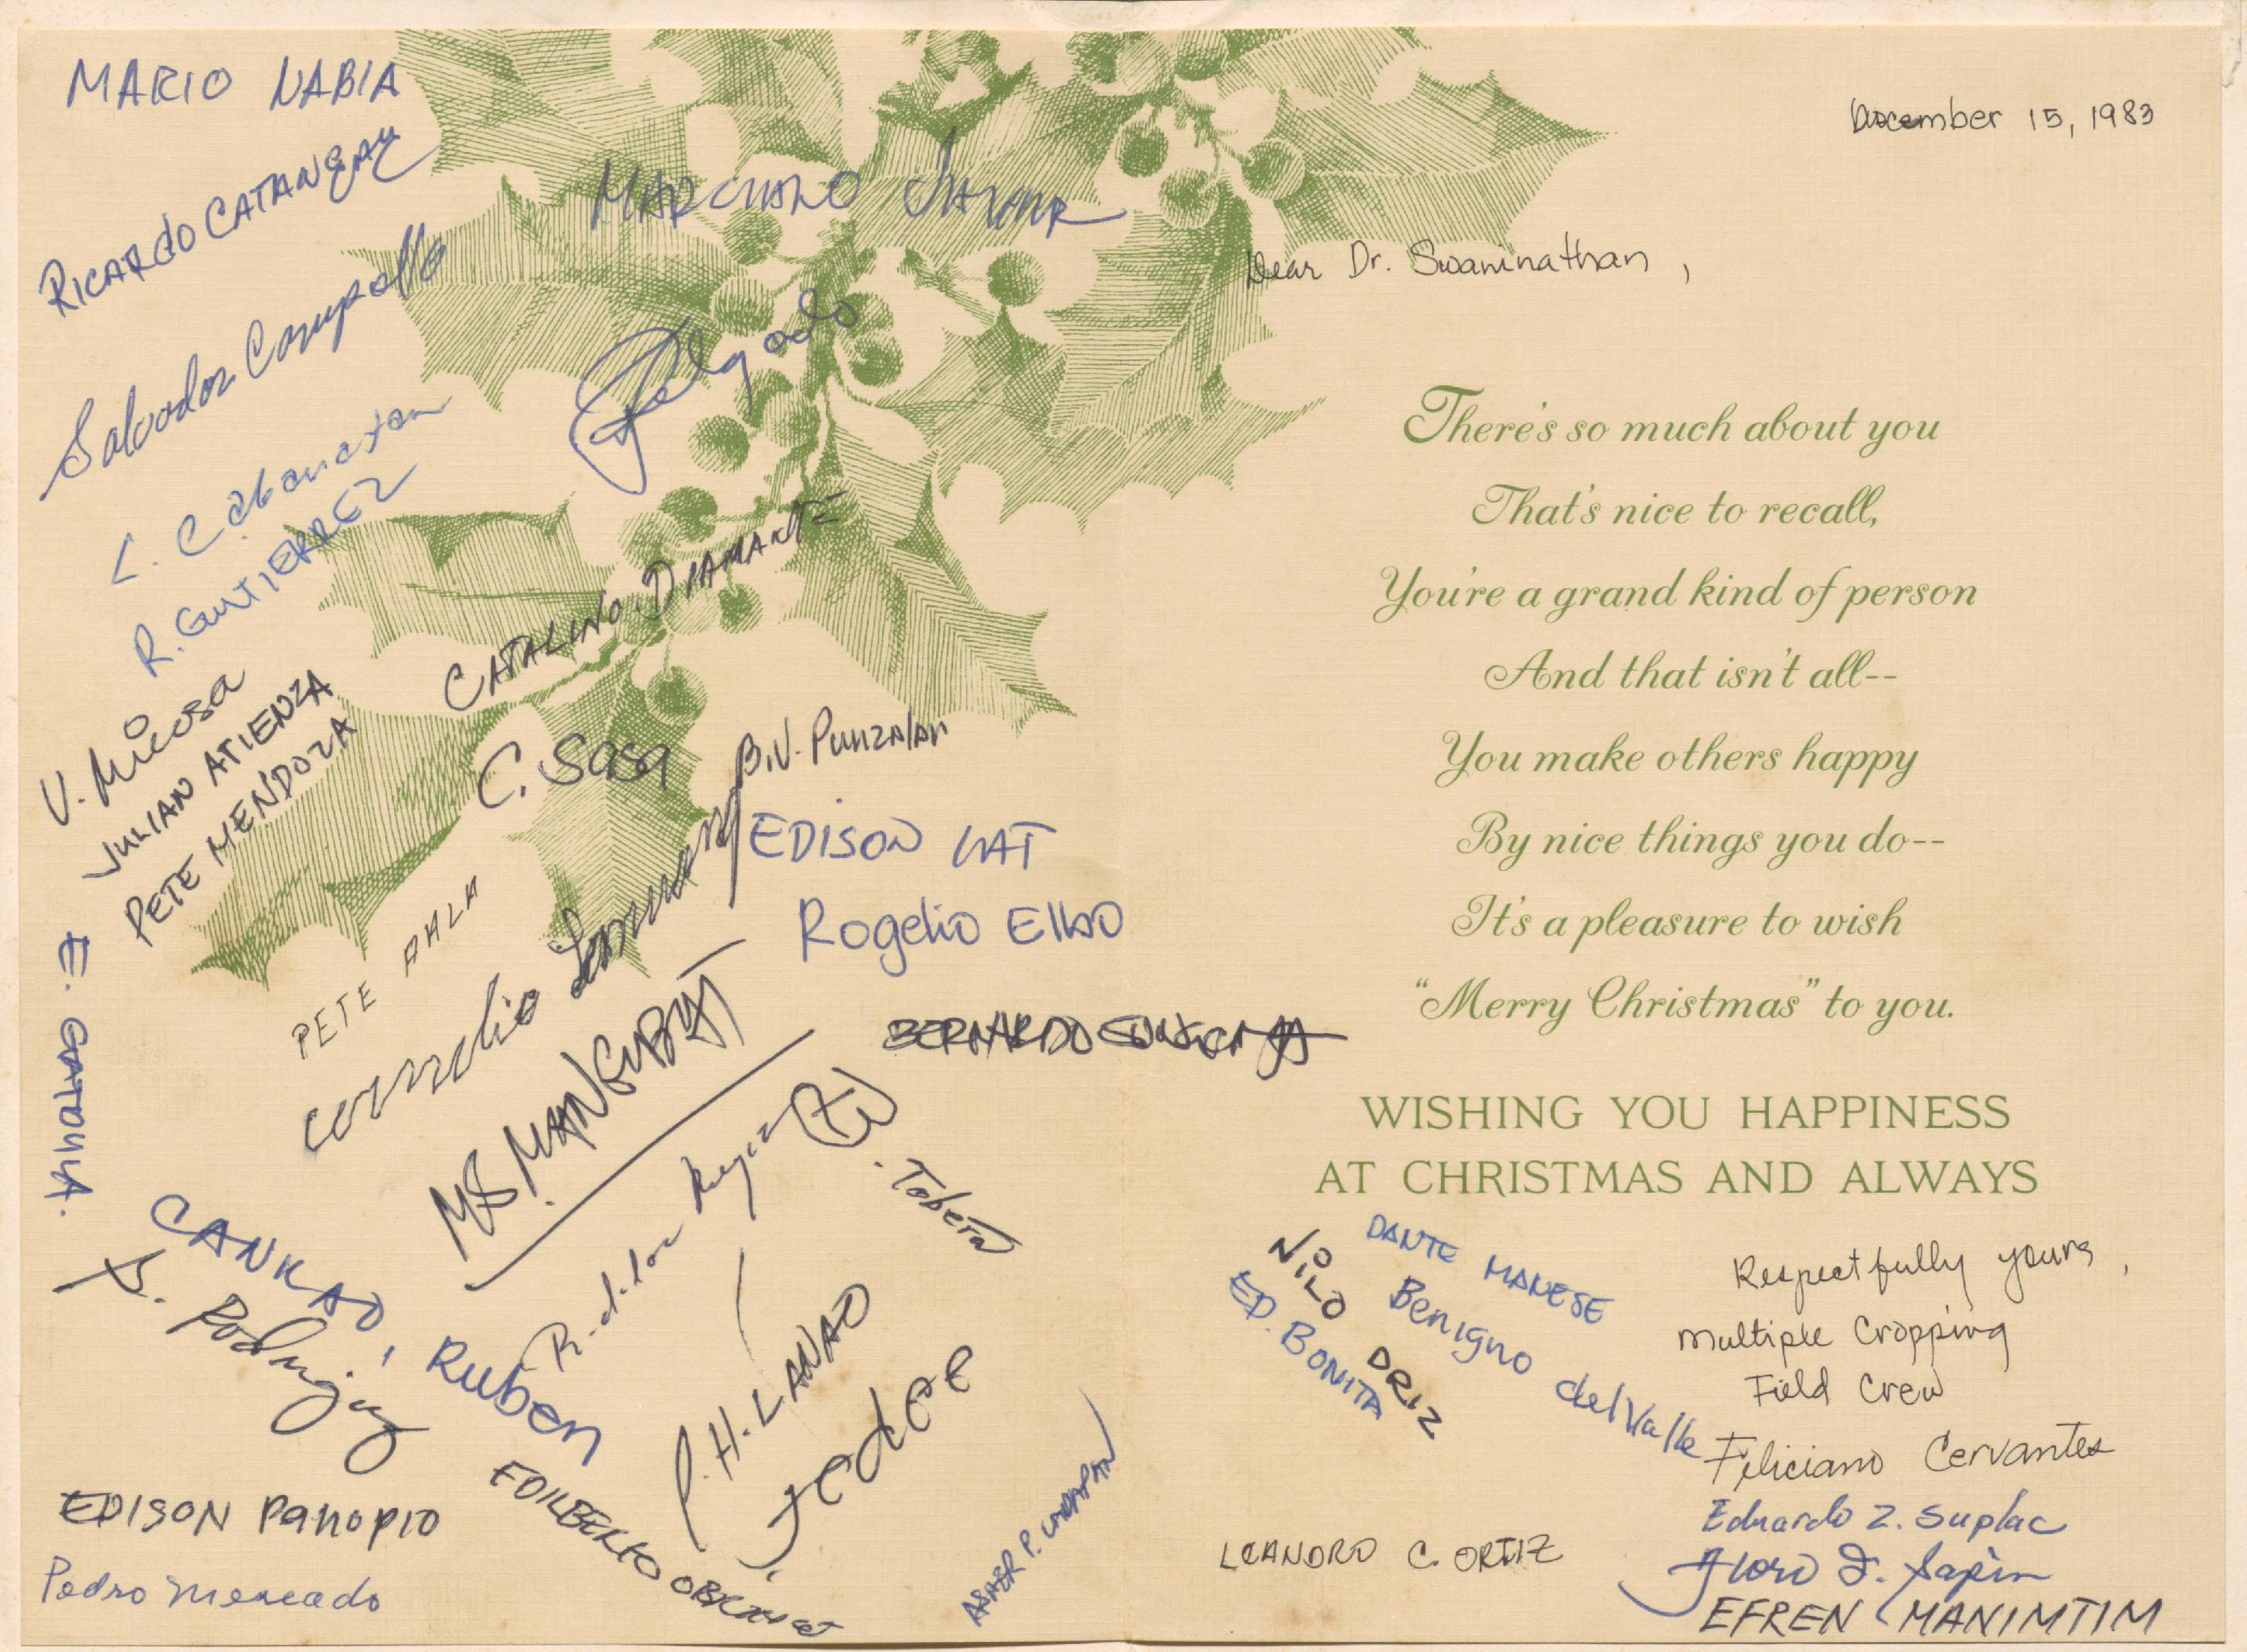 MARIO NABIA
RICARDO CATANGAY
Salvador
MARCIANO
Delgado
L. Cabanatan
R. GUTIERREZ
CATALINO DIAMANTE
V. Micosa
JULIAN ATIENZA
PETE MENDOZA
C. Sasa
B.V. Punzalan
EDISON LAT
Rogelio Elbo
PETE AALA
Cornelio
M.S. MANGUBAT
BERNARDO
E. GATDULA.
Tobera
CANLAO, Ruben
Rodriguez
P.H. LANAO
EDISON Panopio
EDILBERTO
Pedro Mercado
ABAER P.
December 15, 1983
Dear Dr. Swaminathan,
There's so much about you
That's nice to recall,
You're a grand kind of person
And that isn't all--
You make others happy
By nice things you do--
It's a pleasure to wish
"Merry Christmas" to you.
WISHING YOU HAPPINESS
AT CHRISTMAS AND ALWAYS
DANTE MANESE
NILO DRIZ
Benigno del Valle
ED. BONITA
Respectfully yours,
Multiple Cropping
Field Crew
Feliciano Cervantes
Eduardo Z. Suplac
Floro D. Sapin
EFREN MANIMTIM
LEANDRO C. ORTIZ